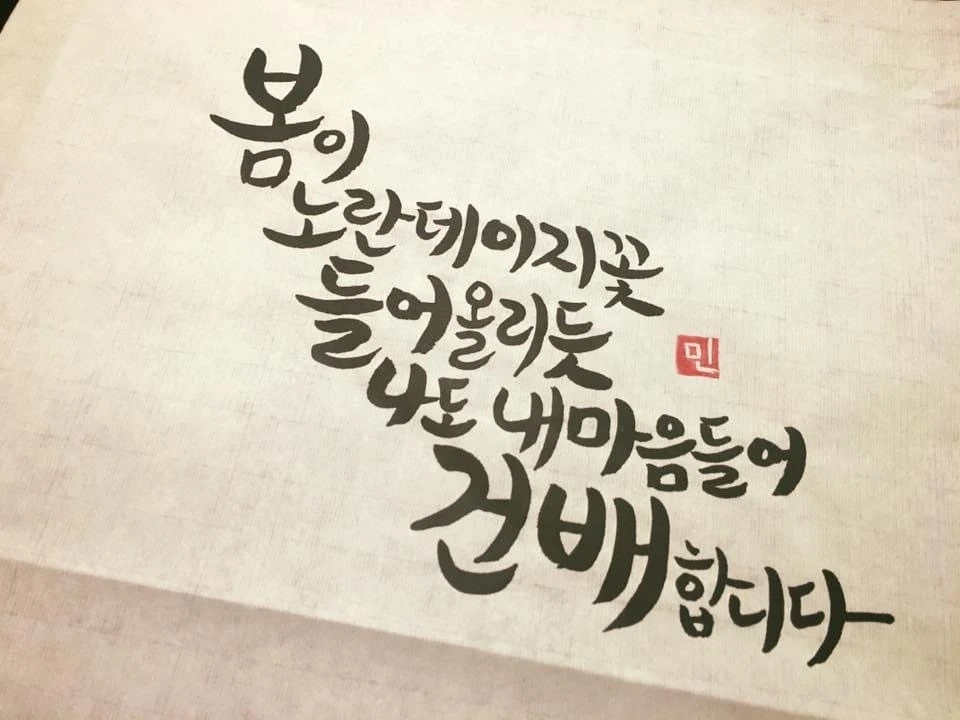 봄이
노란데이지꽃
들어올리듯
나도 내마음들어
건배합니다
민